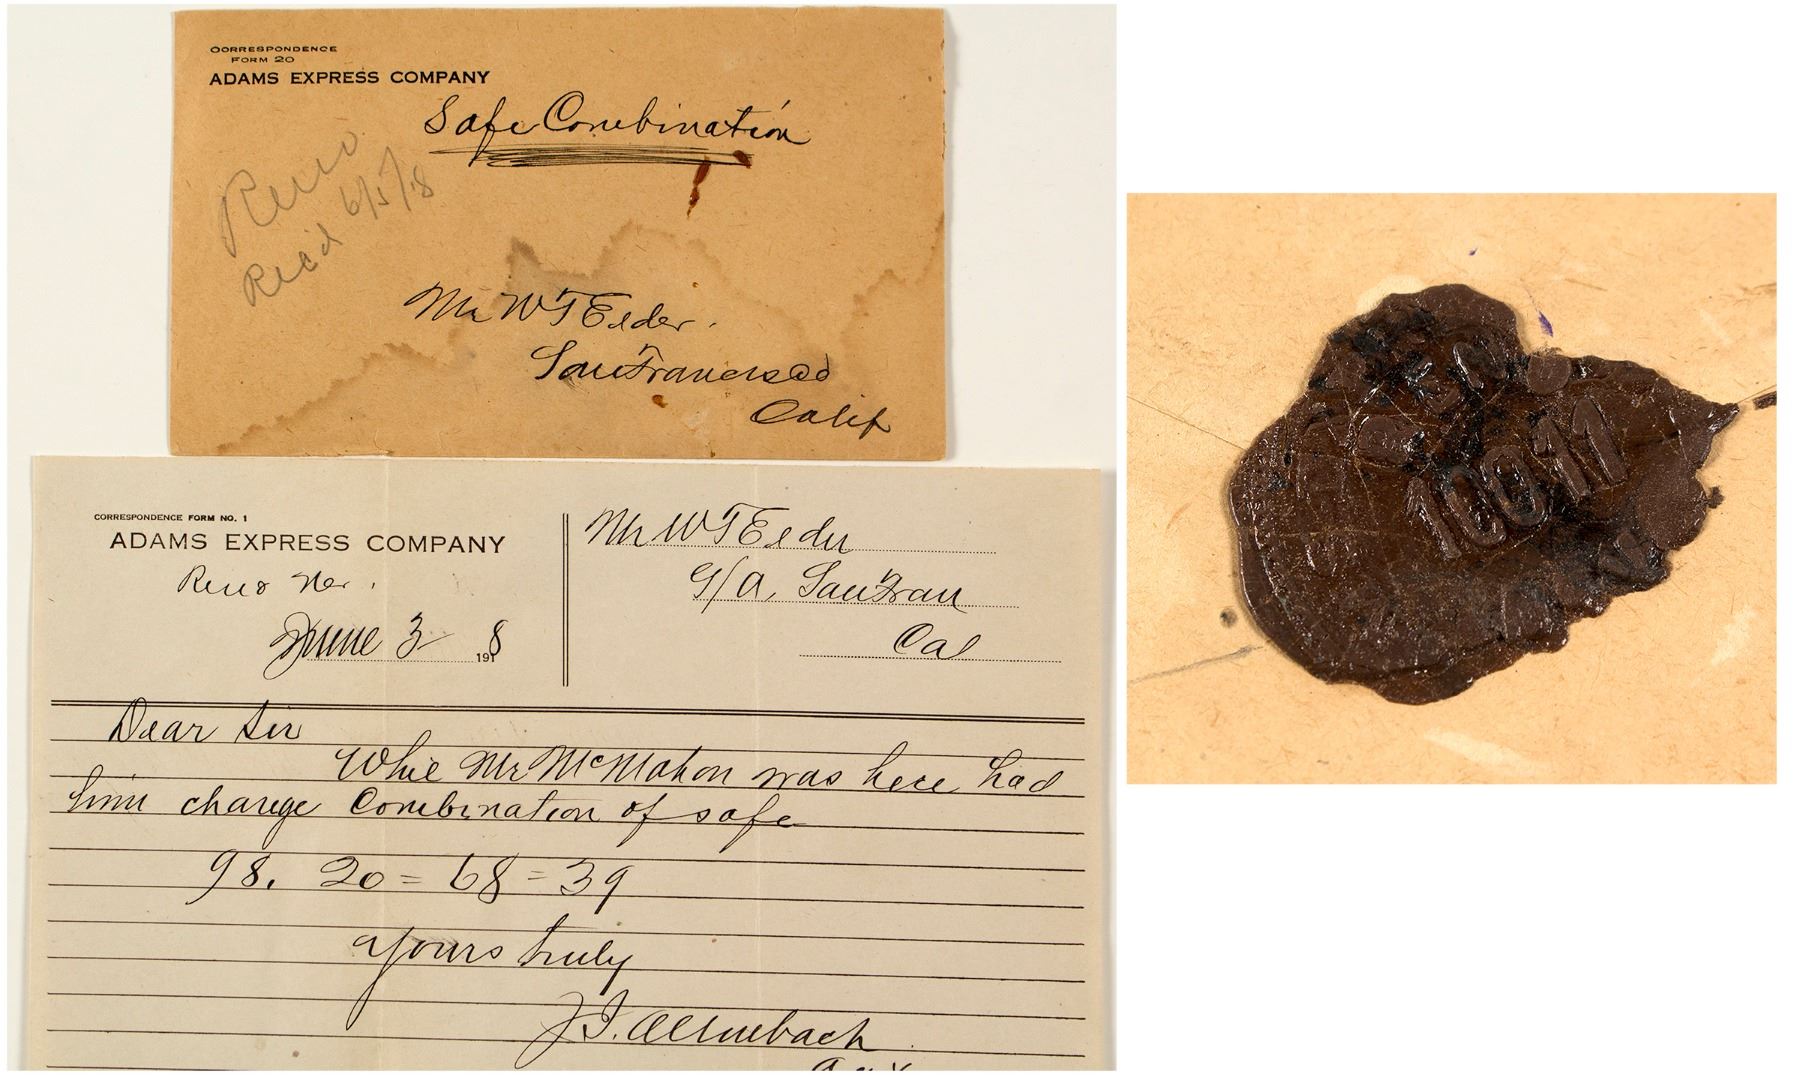 CORRESPONDENCE
FORM 20
ADAMS EXPRESS COMPANY
Safe Combination
Reno
Rec'd 6/5/18
Mr W T Eeder.
San Francisco
Calif
CORRESPONDENCE FORM NO. 1
ADAMS EXPRESS COMPANY
Reno Nev.
June 3 1918
Mr W T Eeder
G/A, San Fran
Cal
Dear Sir
While Mr McMahon was here had
him change Combination of safe
98. 20 = 68 = 39
Yours truly
J. I.
10011